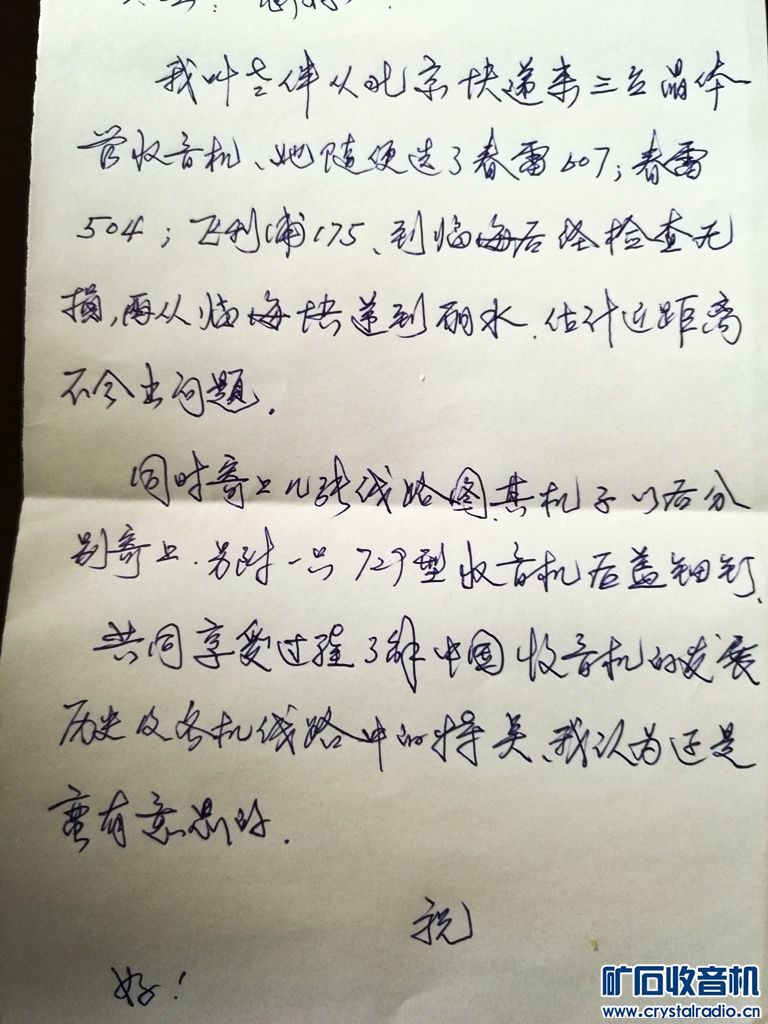 我叫老伴从北京快递来三台晶体
管收音机、她随便选了春雷607；春雷
504；飞利浦175、到临海后经检查无
损，再从临海快递到丽水．估计近距离
不会出问题．
同时寄上几张线路图．其机子以后分
别寄上．另附一只729型收音机后盖铜钉、
共同享受过程了解中国收音机的发展
历史及各机线路中的特点、我认为还是
蛮有意思的．
祝
好！
矿石收音机
www.crystalradio.cn